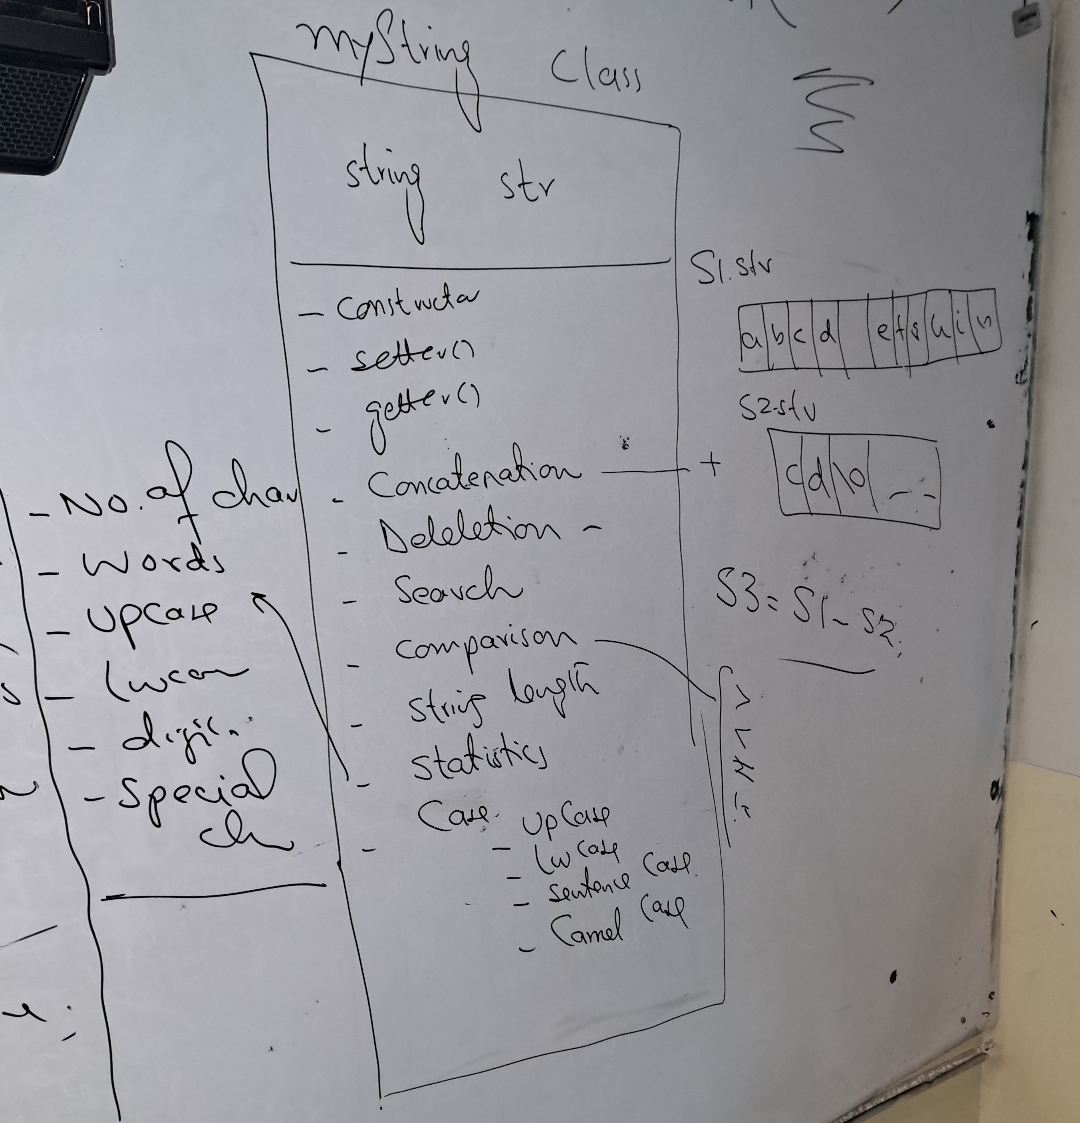 myString Class
string str
- Constructor
- setter()
- getter()
- Concatenation — +
- Deleletion -
- Search
- Comparison
- String length
- Statistics
- Case - UpCase
- Lw Case
- Sentence Case.
- Camel Case
- No. of char
- Words
- UpCase
- digi
- Special
ch
S1.str
a b c d e f g h i n
S2.str
c d \0 - -
S3 = S1 - S2
>
<